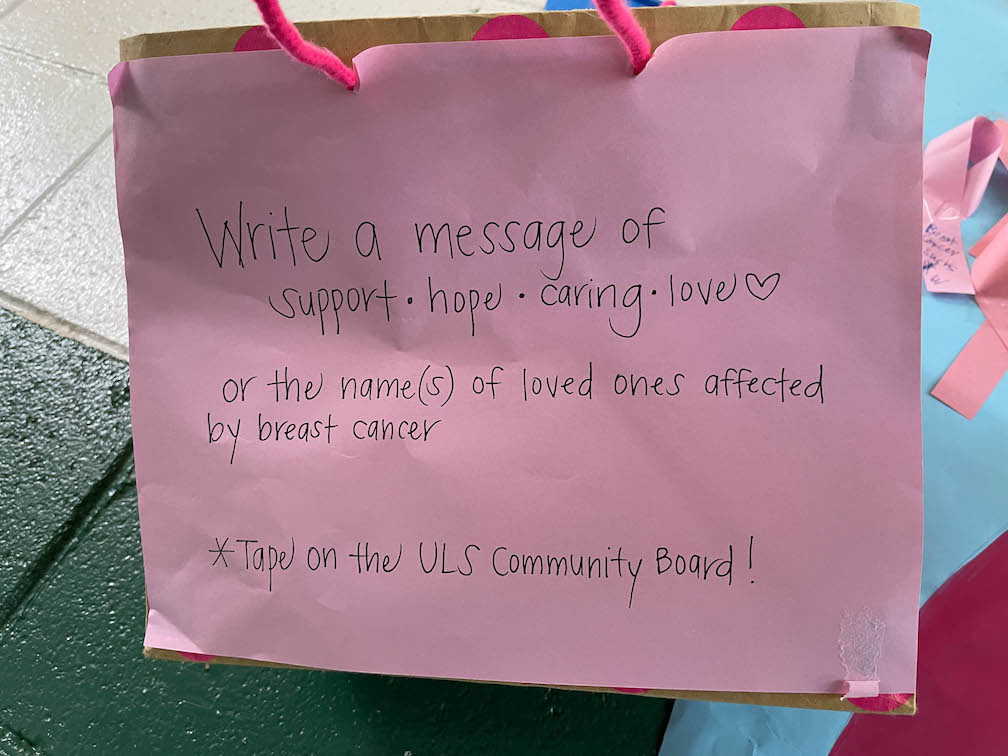 Write a message of
support · hope · caring · love ♡
or the name(s) of loved ones affected
by breast cancer
*Tape on the ULS Community Board!